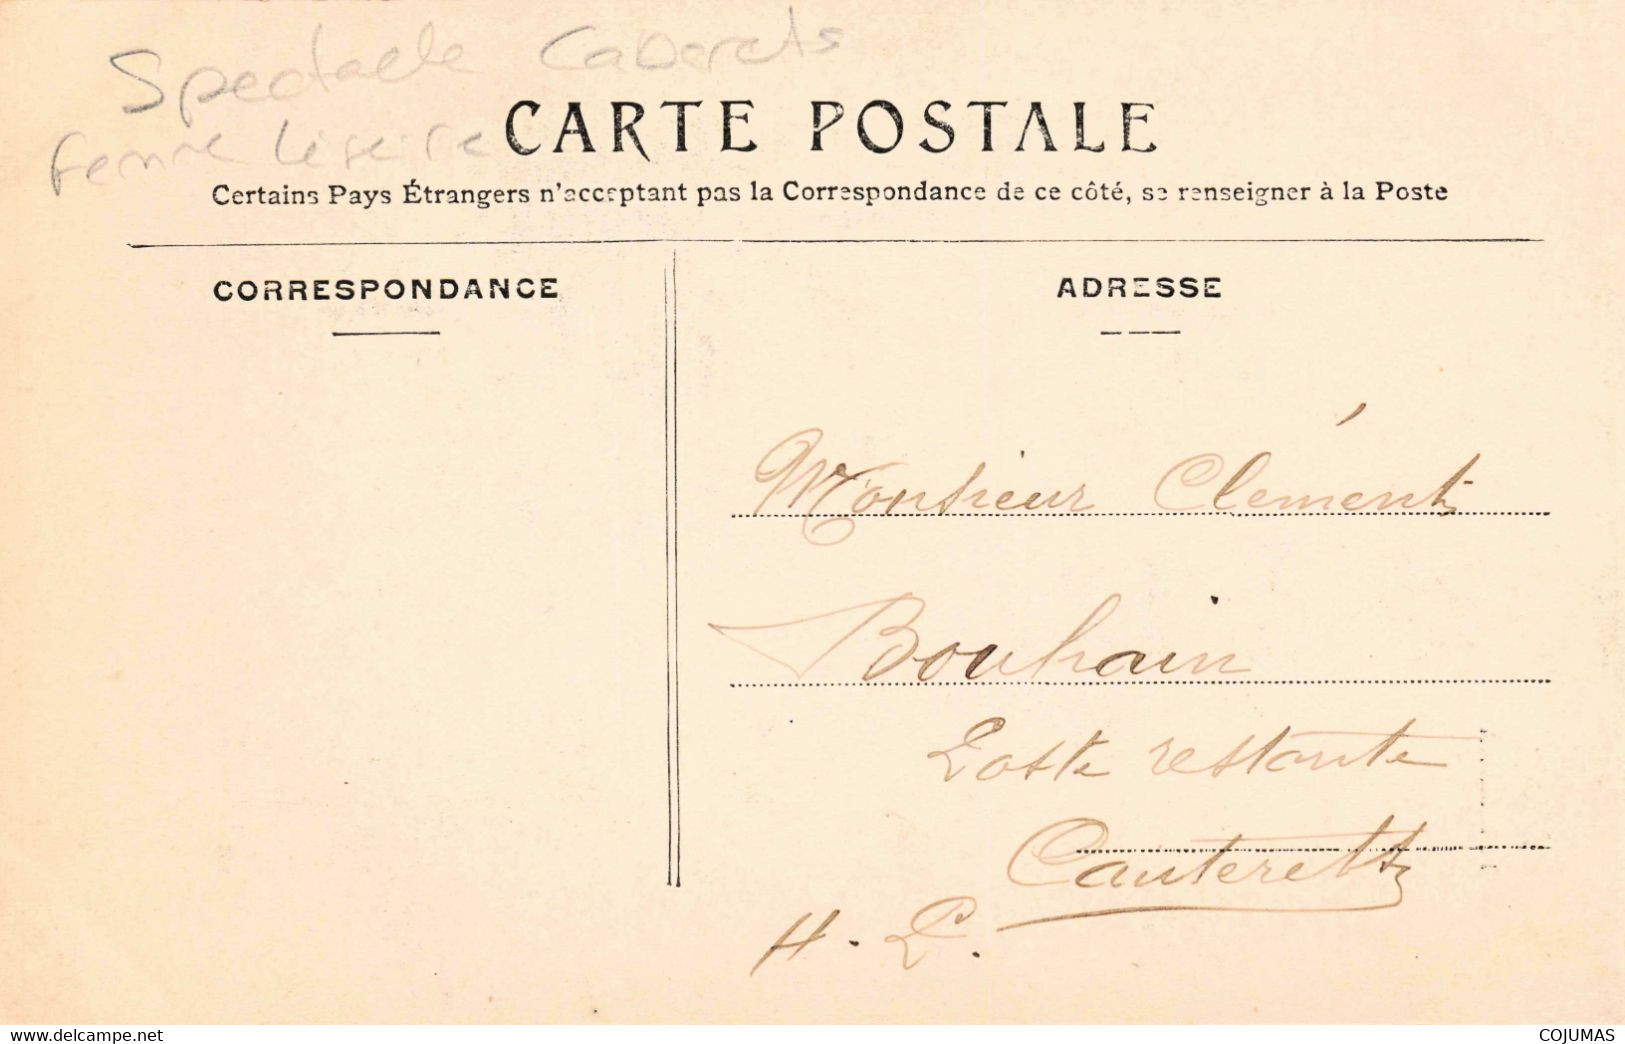 Spectacle Cabarets
femme légère
CARTE POSTALE
Certains Pays Étrangers n'acceptant pas la Correspondance de ce côté, se renseigner à la Poste
CORRESPONDANCE
ADRESSE
Monsieur Clément
Bouhain
Poste restante
Cauterets
H. P.
www.delcampe.net
COJUMAS